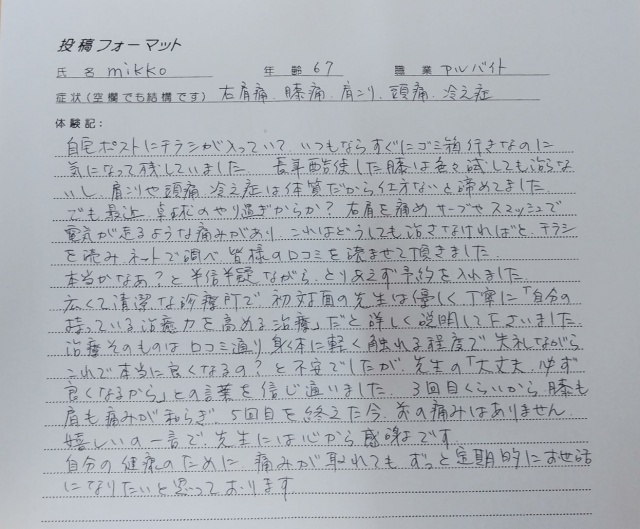 投稿フォーマット
氏名 mikko 年齢 67 職業 アルバイト
症状(空欄でも結構です) 右肩痛、膝痛、肩こり、頭痛、冷え症
体験記:
自宅ポストにチラシが入っていて、いつもならすぐにゴミ箱行きなのに
気になって残していました。長年酷使した膝は色々試しても治らな
いし、肩こりや頭痛、冷え症は体質だから仕方ないと諦めてました。
でも最近、卓球のやり過ぎからか?右肩を痛めサーブやスマッシュで
電気が走るような痛みがあり、これはどうしても治さなければと、チラシ
を読み、ネットで調べ、皆様の口コミを読ませて頂きました。
本当かなあ?と半信半疑ながら、とりあえず予約を入れました。
広くて清潔な診療所で、初対面の先生は優しく丁寧に「自分の
持っている治癒力を高める治療」だと詳しく説明して下さいました。
治療そのものは口コミ通り、身体に軽く触れる程度で、失礼ながら
これで本当に良くなるの?と不安でしたが、先生の「大丈夫、必ず
良くなるから」との言葉を信じ通いました。3回目くらいから、膝も
肩も痛みが和らぎ、5回目を終えた今、あの痛みはありません。
嬉しいの一言で、先生には心から感謝です。
自分の健康のために、痛みが取れても、ずっと定期的にお世話
になりたいと思っております。